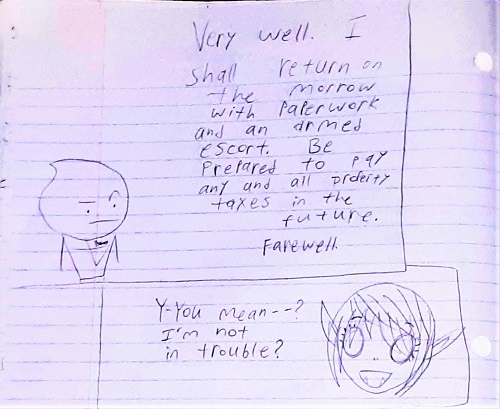 Very well. I
shall return on
the morrow
with paperwork
and an armed
escort. Be
prepared to pay
any and all property
taxes in the
future.
Farewell.
Y-You mean--?
I'm not
in trouble?